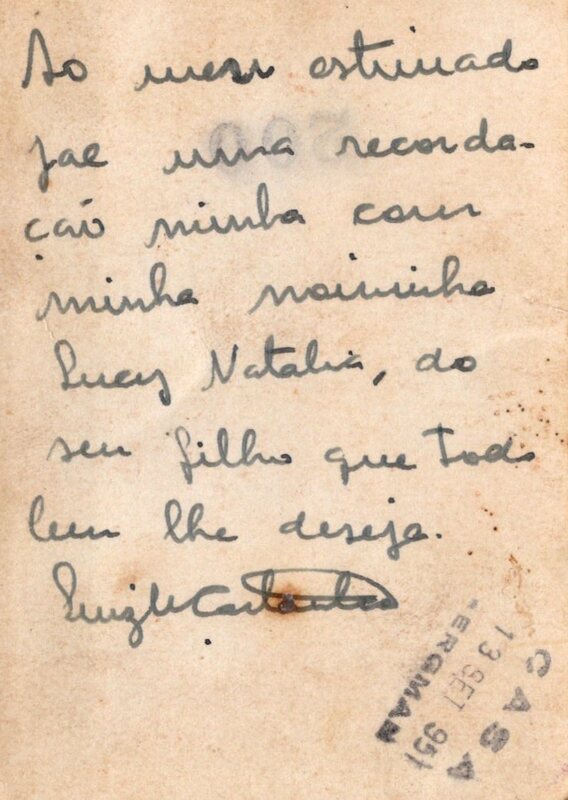 Ao meu estimado
pae uma recorda-
ção minha com
minha noivinha
Lucy Natalia, do
seu filho que todo
bem lhe deseja.
Luiz
CASA
BERGMAN
13 SET 951